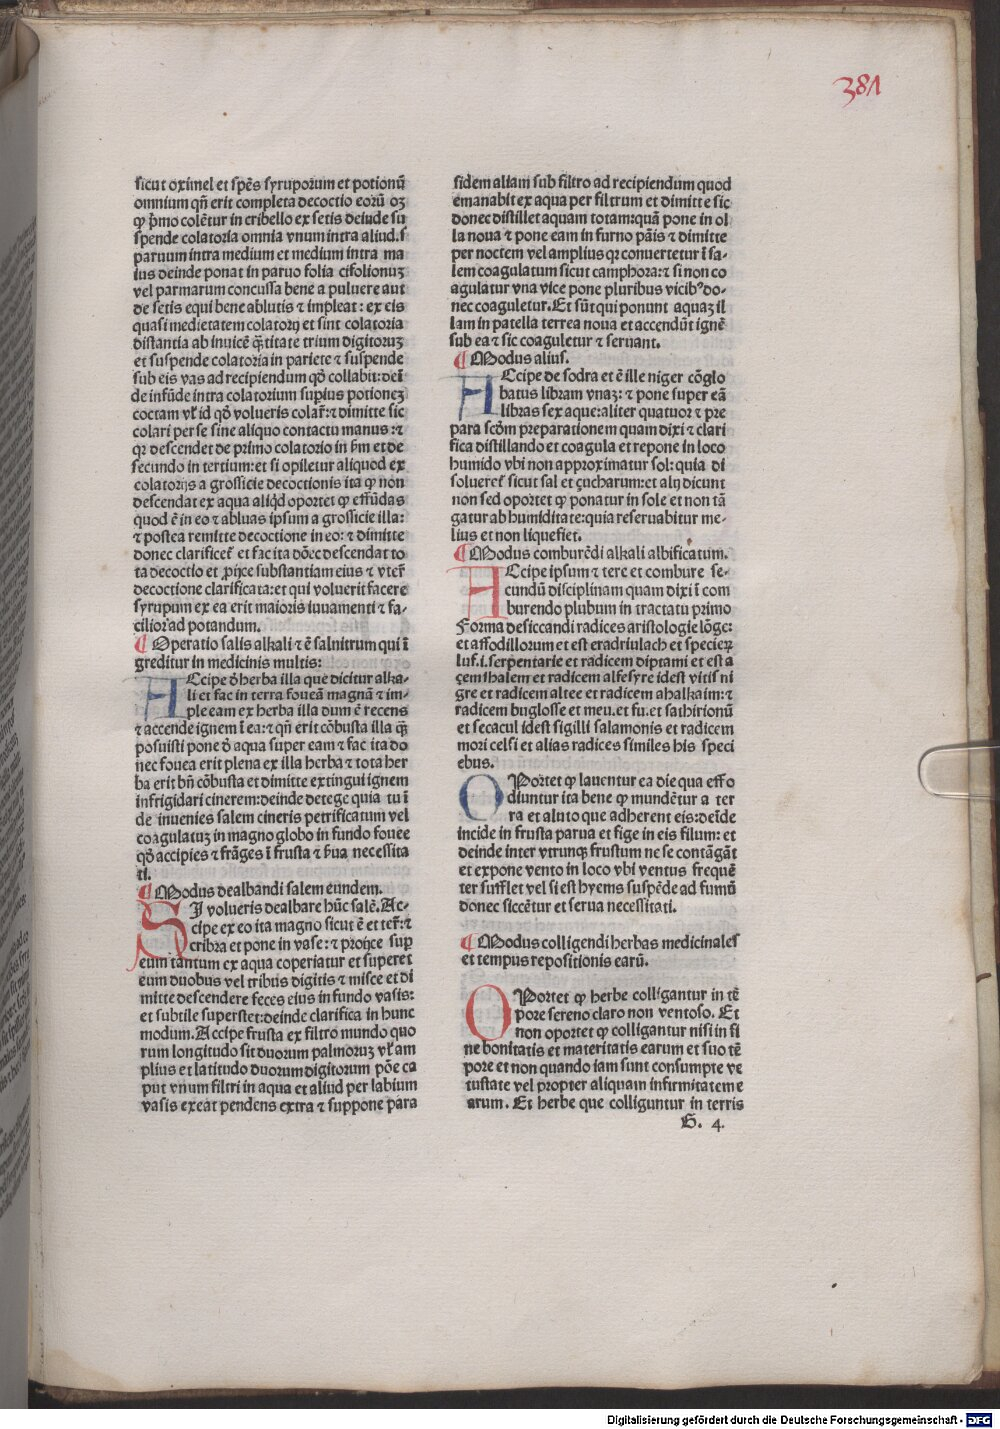 381
sicut oximel et spẽs syruporum et potionũ
omnium qñ erit completa decoctio eorũ oꝫ
ꝙ p̃mo colẽtur in cribello ex setis deinde su
spende colatoria omnia vnum intra aliud.s
paruum intra medium et medium intra ma
ius deinde ponat in paruo folia cifolionuꝫ
vel parmarum concussa bene a puluere aut
de setis equi bene ablutis ⁊ impleat: ex eis
quasi medietatem colatorij et sint colatoria
distantia ab inuicẽ q̃titate trium digitoruꝫ
et suspende colatoria in pariete ⁊ suspende
sub eis vas ad recipiendum qđ collabit: deĩ
de infũde intra colatorium supius potioneꝫ
coctam vł id qđ volueris colař: ⁊ dimitte sic
colari per se sine aliquo contactu manus: ⁊
qr descendet de primo colatorio in b̃m et de
secundo in tertium: et si opiletur aliquod ex
colatorijs a grossicie decoctionis ita ꝙ non
descendat ex aqua aliqđ oportet ꝙ effũdas
quod ẽ in eo ⁊ abluas ipsum a grossicie illa:
⁊ postea remitte decoctione in eo: ⁊ dimitte
donec clarificeť et fac ita dõec descendat to
ta decoctio et ꝓijce substantiam eius ⁊ vteř
decoctione clarificata: et qui voluerit facere
syrupum ex ea erit maioris iuuamenti ⁊ fa-
cilior ad potandum.
¶ Operatio salis alkali ⁊ ẽ salnitrum qui ĩ
greditur in medicinis multis:
ACcipe õ herba illa que dicitur alka-
li et fac in terra foueã magnã ⁊ im-
ple eam ex herba illa dum ẽ recens
⁊ accende ignem ĩ ea: ⁊ qñ erit cõbusta illa q̃
posuisti pone õ aqua super eam ⁊ fac ita do
nec fouea erit plena ex illa herba ⁊ tota her
ba erit bñ cõbusta et dimitte extingui ignem
infrigidari cinerem: deinde detege quia tu ĩ
de inuenies salem cineris petrificatum vel
coagulatuꝫ in magno globo in fundo fouee
qđ accipies ⁊ frãges ĩ frusta ⁊ b̃ua necessita
ti.
¶ Modus dealbandi salem eundem.
SI volueris dealbare hũc salẽ. Ac-
cipe ex eo ita magno sicut ẽ et teř: ⁊
cribra et pone in vase: ⁊ proijce sup
eum tantum ex aqua coperiatur et superet
eum duobus vel tribus digitis ⁊ misce et di
mitte descendere feces eius in fundo vasis:
et subtile superstet: deinde clarifica in hunc
modum. Accipe frusta ex filtro mundo quo
rum longitudo sit duorum palmoruꝫ vł am
plius et latitudo duorum digitorum põe ca
put vnum filtri in aqua et aliud per labium
vasis exeat pendens extra ⁊ suppone para
sidem aliam sub filtro ad recipiendum quod
emanabit ex aqua per filtrum et dimitte sic
donec distillet aquam totam: quã pone in ol
la noua ⁊ pone eam in furno pãis ⁊ dimitte
per noctem vel amplius qr conuertetur ĩ sa-
lem coagulatum sicut camphora: ⁊ si non co
agulatur vna vice pone pluribus vicibꝰ do-
nec coaguletur. Et sũt qui ponunt aquaꝫ il
lam in patella terrea noua et accendũt ignẽ
sub ea ⁊ sic coaguletur ⁊ seruant.
¶ Modus alius.
ACcipe de sodra et ẽ ille niger cõglo
batus libram vnaꝫ: ⁊ pone super eã
libras sex aque: aliter quatuor ⁊ pre
para scđm preparationem quam dixi ⁊ clari
fica distillando et coagula et repone in loco
humido vbi non approximatur sol: quia di
solueret sicut sal et çucharum: et alij dicunt
non sed oportet ꝙ ponatur in sole et non tã
gatur ab humiditate: quia reseruabitur me-
lius et non liquefiet.
¶ Modus comburẽdi alkali albificatum.
ACcipe ipsum ⁊ tere et combure se-
cundũ disciplinam quam dixi ĩ com
burendo plubum in tractatu primo
Forma desiccandi radices aristologie lõge:
et affodillorum et est eradriulach et specieꝝ
luf.i.serpentarie et radicem diptami et est a
çemihalem et radicem alfesyre idest vitis ni
gre et radicem altee et radicem ahalkaim: ⁊
radicem buglosse et meu. et fu. et sathirionũ
et secacul idest sigilli salamonis et radicem
mori celsi et alias radices similes his speci
ebus.
OPortet ꝙ lauentur ea die qua effo
diuntur ita bene ꝙ mundẽtur a ter
ra et aluto que adherent eis: deĩde
incide in frusta parua et fige in eis filum: et
deinde inter vtrunqꝫ frustum ne se contãgãt
et expone vento in loco vbi ventus frequẽ
ter sufflet vel si est hyems suspẽde ad fumũ
donec siccẽtur et serua necessitati.
¶ Modus colligendi herbas medicinales
et tempus repositionis earũ.
OPortet ꝙ herbe colligantur in tẽ
pore sereno claro non ventoso. Et
non oportet ꝙ colligantur nisi in fi
ne bonitatis et materitatis earum et suo tẽ
pore et non quando iam sunt consumpte ve
tustate vel propter aliquam infirmitatem e
arum. Et herbe que colliguntur in terris
G. 4.
Digitalisierung gefördert durch die Deutsche Forschungsgemeinschaft - DFG